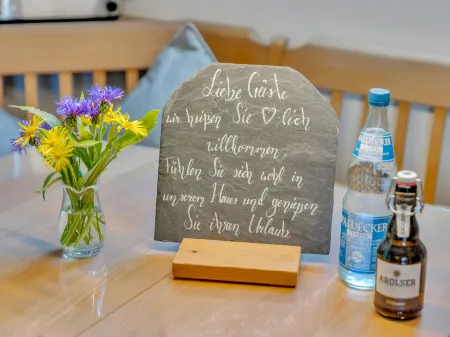 Liebe Gäste
wir heißen Sie ♡-lich
willkommen,
Fühlen Sie sich wohl in
unserem Haus und genießen
Sie ihren Urlaub
WALDECKER
AROLSER